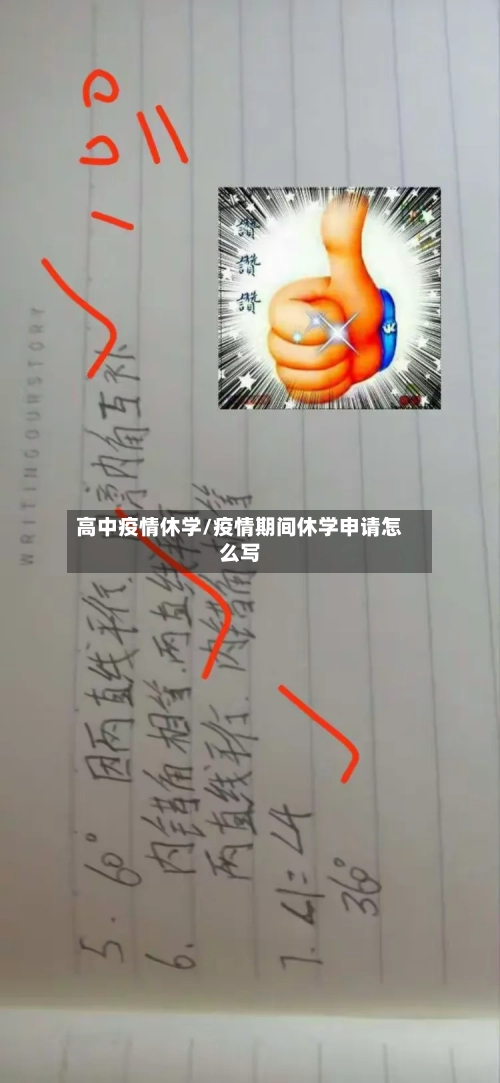 100
WRITINGOURSTORY
讚
讚
讚
高中疫情休学/疫情期间休学申请怎
么写
5. 60° 因两直线平行.同旁内角互补
6. 内错角相等.两直线平行
两直线平行.内错角相等
7. ∠1=∠4
36°